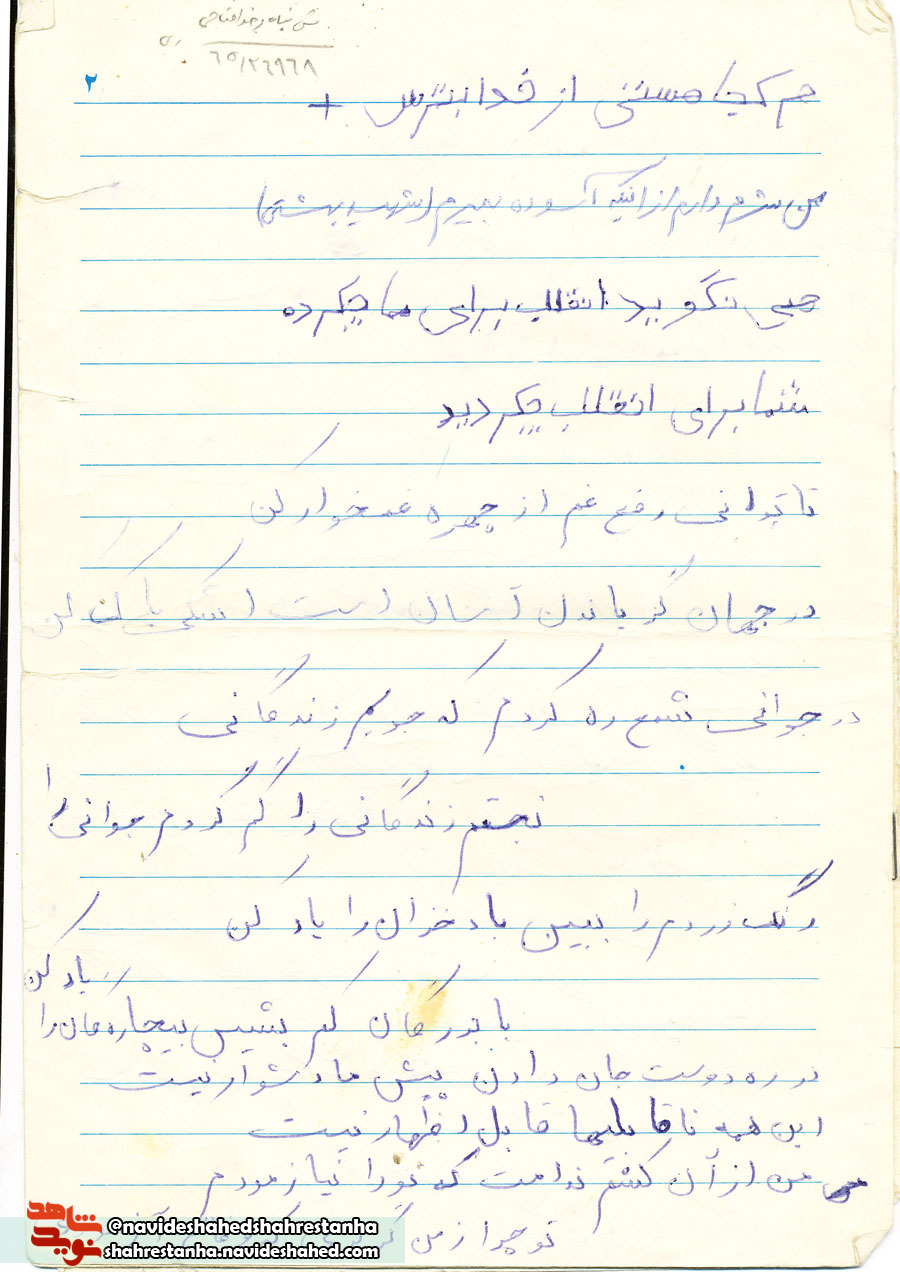 ۶۵/۲۶۹۶۸
۲
هر کجا هستی از خدا بترس +
من شرم دارم از اینکه آسوده بمیرم (شهید بهشتی)
هی نگوید انقلاب برای ما چکرده
شما برای انقلاب چکردید
تا توانی رفع غم از چهره غمخوار کن
در جهان گریاندن آسان است اشکی پاک کن
در جوانی شمع ره کردم که جویم زندگانی
نجستم زندگانی را گم کردم جوانی را
رنگ زردم را ببین باد خزان را یاد کن
با بزرگان کم بشین بیچاره گان را یاد کن
در ره دوست جان دادن پیش ما دشوار نیست
این همه ناقابلیها قابل اظهار نیست
من از آن کشتم ندامت که تو را نیازمودم
تو چرا از من
@navideshahedshahrestanha
shahrestanha.navideshahed.com
نوید شاهد